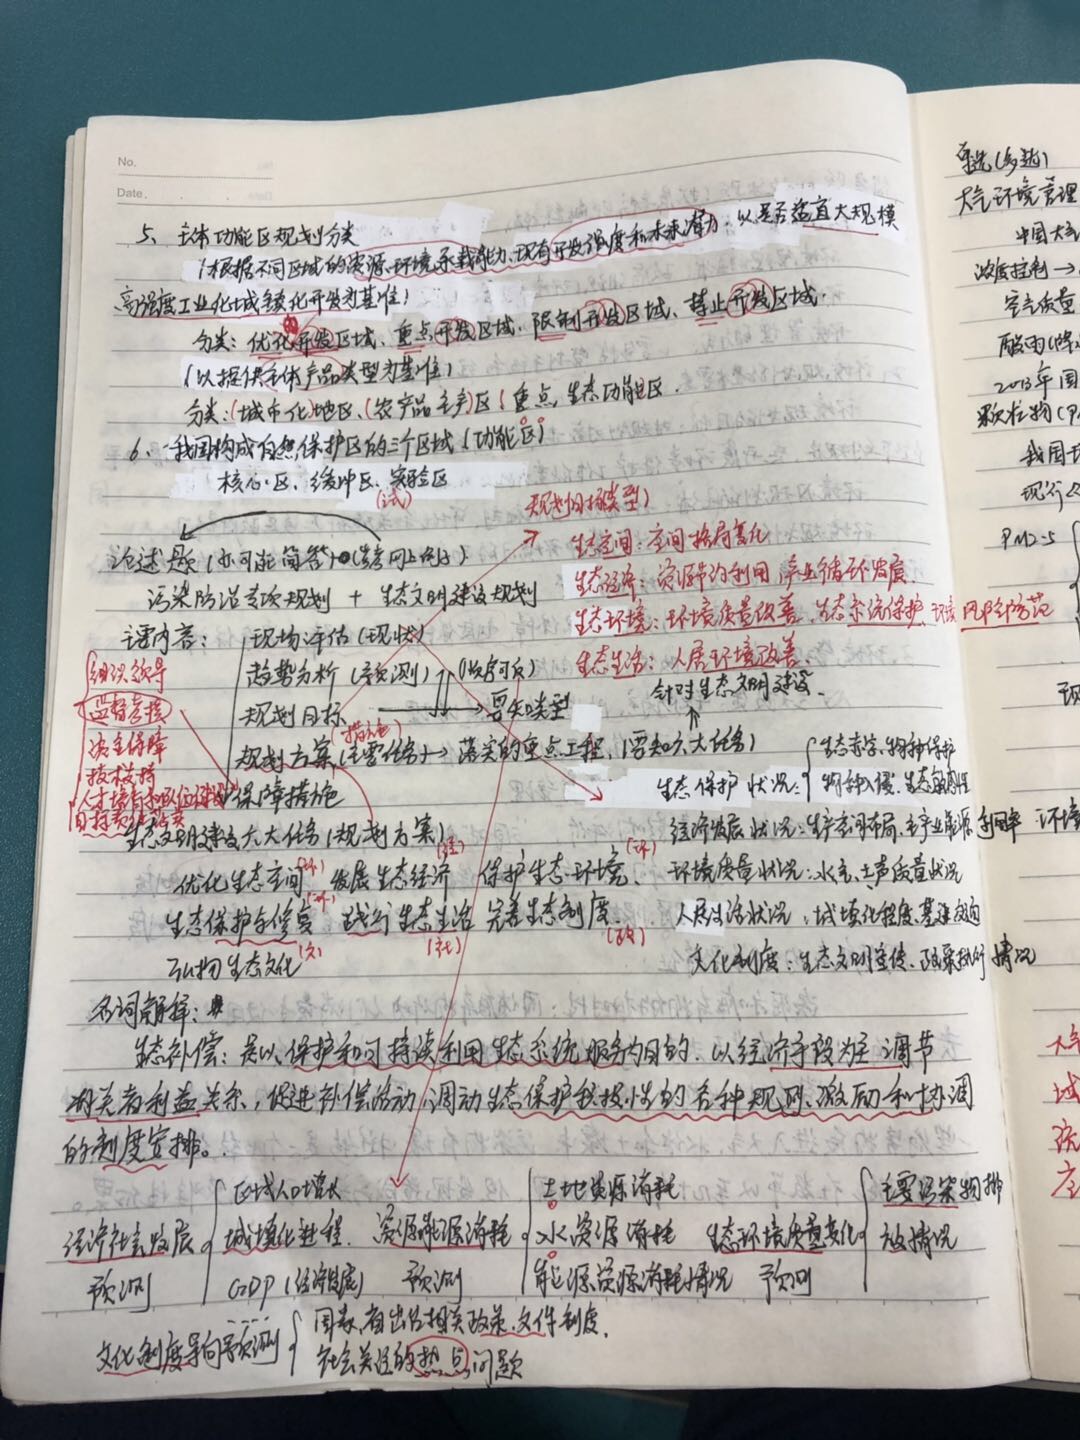 No.
Date.
5、主体功能区规划分类
(根据不同区域的资源环境承载能力、现有开发强度和未来潜力；以是否适宜大规模
高强度工业化城镇化开发为基准)
分类：优化开发区域、重点开发区域、限制开发区域、禁止开发区域.
(以提供主体产品类型为基准)
分类：(城市化)地区、(农产品主产)区(重点生态功能区.
6、我国构成自然保护区的三个区域(功能区)
核心区、缓冲区、实验区
(试)
规划目标类型)
生态空间：空间格局优化
生态经济：资源节约利用 产业循环发展.
生态环境：环境质量改善、生态系统保护、环境风险防范
生态生活：人居环境改善.
论述题(亦可能简答)
污染防治专项规划 + 生态文明建设规划
主要内容：
现场评估(现状)
趋势分析(预测)
规划目标 → 要知类型
针对生态文明建设.
规划方案(主要任务)→落实的重点工程、(要知六大任务)
(措施)
保障措施
组织领导
监督考核
资金保障
技术支持
生态保护状况：
物种入侵、生态敏感性
生态文明建设六大任务(规划方案)
经济发展状况：生产空间布局、
利用率
优化生态空间 发展生态经济 保护生态环境、
(环)
(经)
(环)
环境质量状况：水、土、声质量状况
生态保护与修复 践行生态生活 完善生态制度.
(环)
(社)
(政)
人居生活状况：城镇化程度、基建
弘扬生态文化
(文)
文化制度：生态文明宣传、政策执行情况
名词解释：
生态补偿：是以保护和可持续利用生态系统服务为目的、以经济手段为主调节
相关者利益关系，促进补偿活动、调动生态保护积极性的各种规则、激励和协调
的制度安排。
经济社会发展
预测
区域人口增长
城镇化进程
GDP(经济发展)
资源能源消耗
预测
土地资源消耗
水资源消耗
能源资源消耗情况
生态环境质量变化
预测
主要污染物排
放情况
文化制度导向预测
国家、省出台相关政策、文件制度.
社会关注的热点问题
单选(多选)
大气环境管理
中国大气
浓度控制→
空气质量
酸雨
2013年国
颗粒物
现行
PM2.5
环境